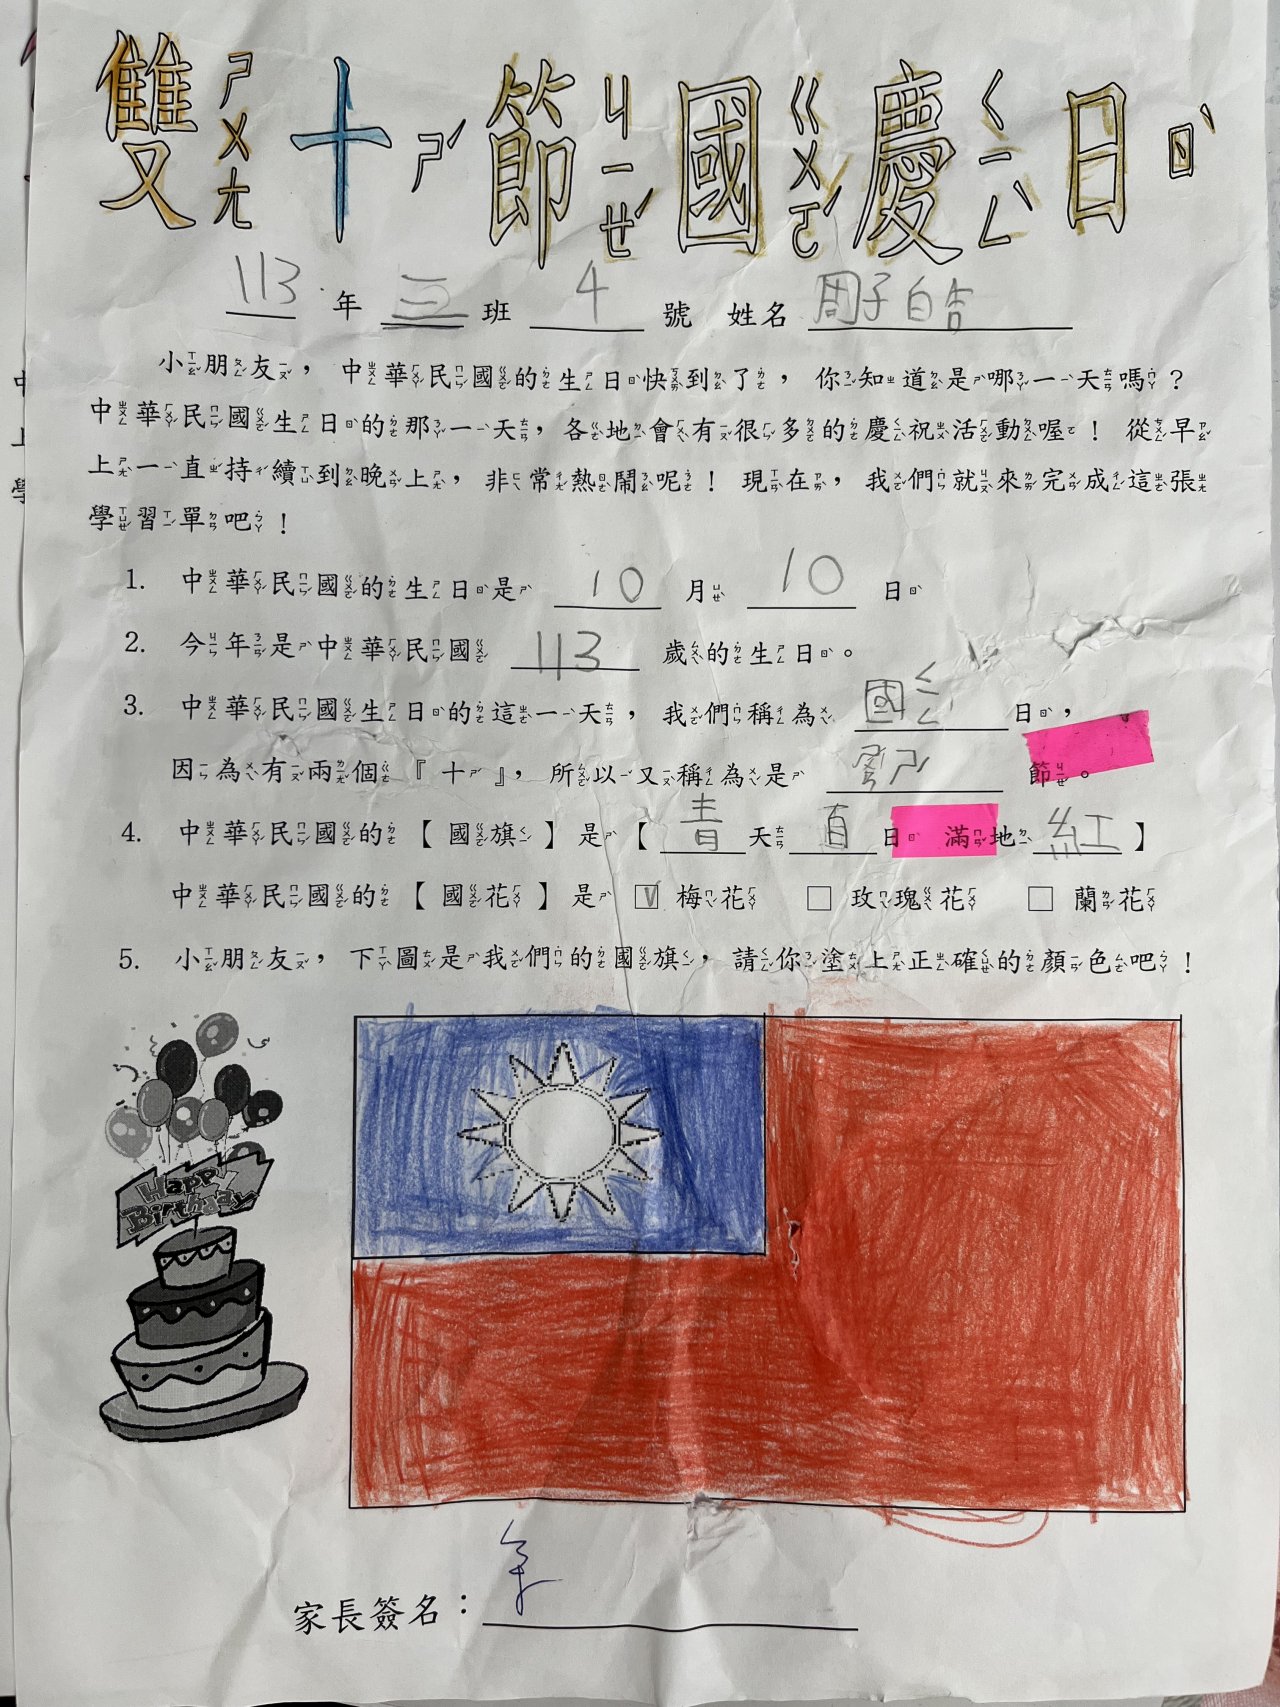 雙ㄕㄨㄤ十ㄕˊ節ㄐㄧㄝˊ國ㄍㄨㄛˊ慶ㄑㄧㄥˋ日ㄖˋ
113 年 三 班 4 號 姓名 周子皓
小朋友，中華民國的生日快到了，你知道是哪一天嗎？
中華民國生日的那一天，各地會有很多的慶祝活動喔！從早
上一直持續到晚上，非常熱鬧呢！現在，我們就來完成這張
學習單吧！
1. 中華民國的生日是 10 月 10 日
2. 今年是中華民國 113 歲的生日。
3. 中華民國生日的這一天，我們稱為 國ㄑㄧㄥ 日，
因為有兩個『十』，所以又稱為是 節。
4. 中華民國的【國旗】是【青天 日 滿地 紅】
中華民國的【國花】是 ☑ 梅花 □ 玫瑰花 □ 蘭花
5. 小朋友，下圖是我們的國旗，請你塗上正確的顏色吧！
Happy
Birthday
家長簽名：